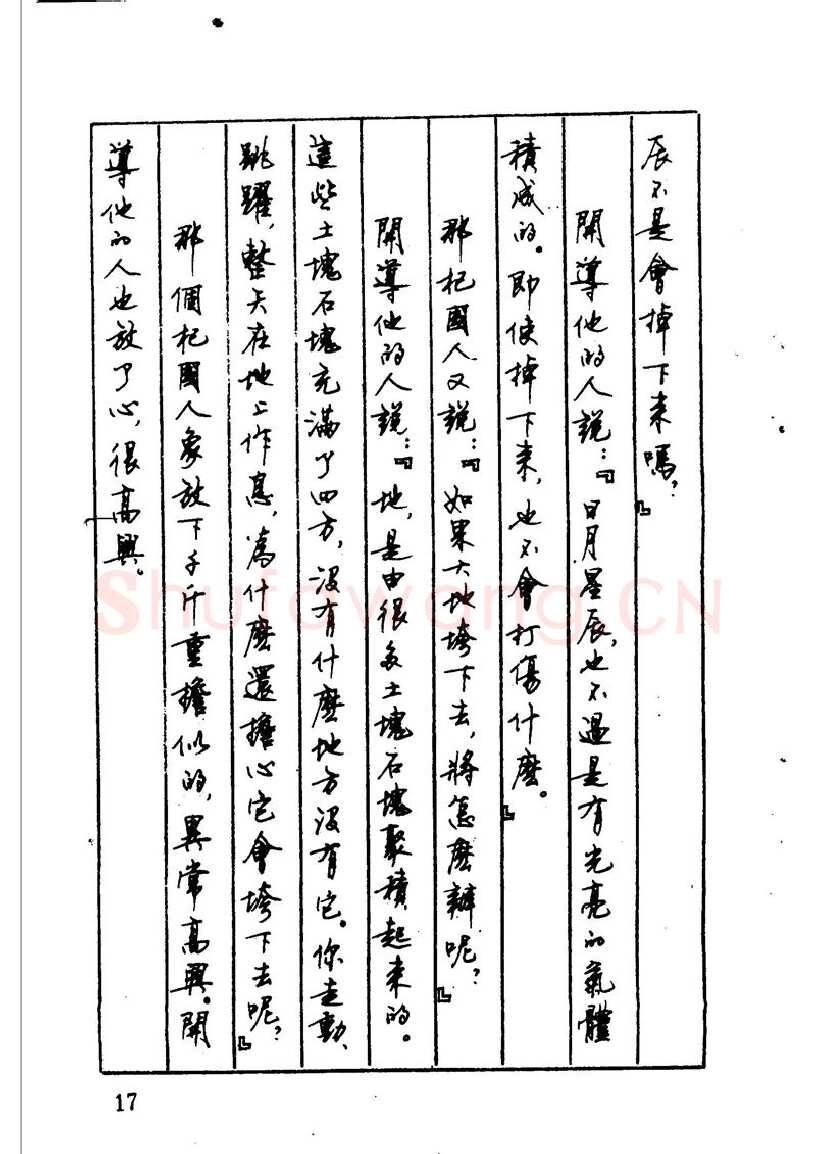 辰不是會掉下来嗎？』
開導他的人説：『日月星辰，也不過是有光亮的氣體
積成的。即使掉下来，也不會打傷什麽。』
那杞國人又説：『如果大地垮下去，將怎麽辦呢？』
開導他的人説：『地，是由很多土塊石塊聚積起来的。
這些土塊石塊充滿了四方，没有什麽地方没有它。你走動、
跳躍，整天在地上作息，為什麽還擔心它會垮下去呢？』
那個杞國人象放下千斤重擔似的，異常高興。開
導他的人也放了心，很高興。
17
Shufawang.CN